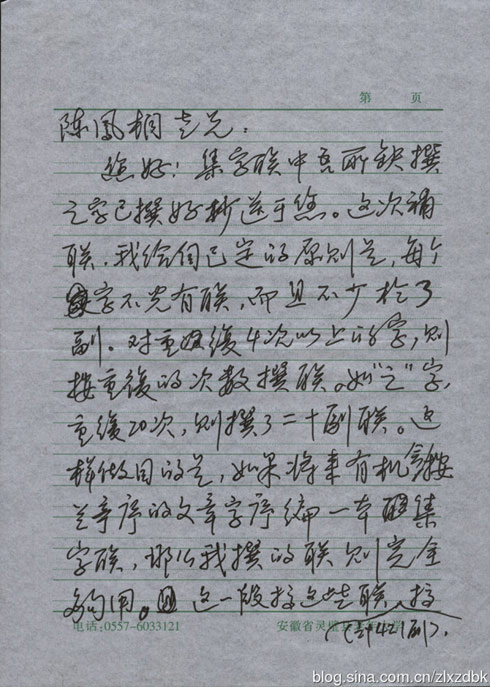 第 页
陈凤桐老兄：
您好！集字联中吾所缺撰
之字已撰好抄送于您。这次补
联，我给自己定的原则是，每个
字不光有联，而且不少於3
副。对重復4次以上的字，则
按重復的次数撰联。如“之”字，
重復20次，则撰了二十副联。这
样做目的是，如果将来有机会按
兰亭序的文章字序编一本集
字联，那么我撰的联则完全
够用。这一段撰这些联，按
（计421副）。
电话：0557-6033121
安徽省灵璧县
blog.sina.com.cn/zlxzdbk